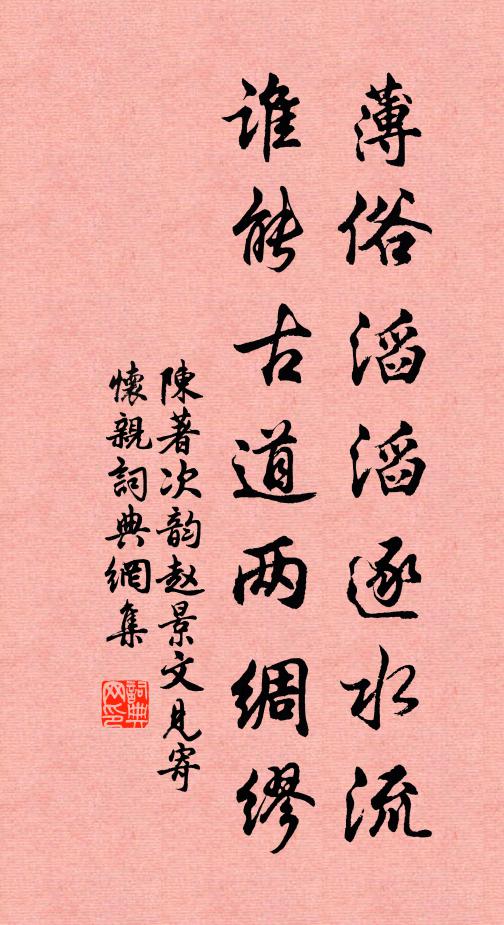 薄俗滔滔逐水流
谁能古道两绸缪
陳著次韵赵景文見寄
懷親詞典網集
詞典网印